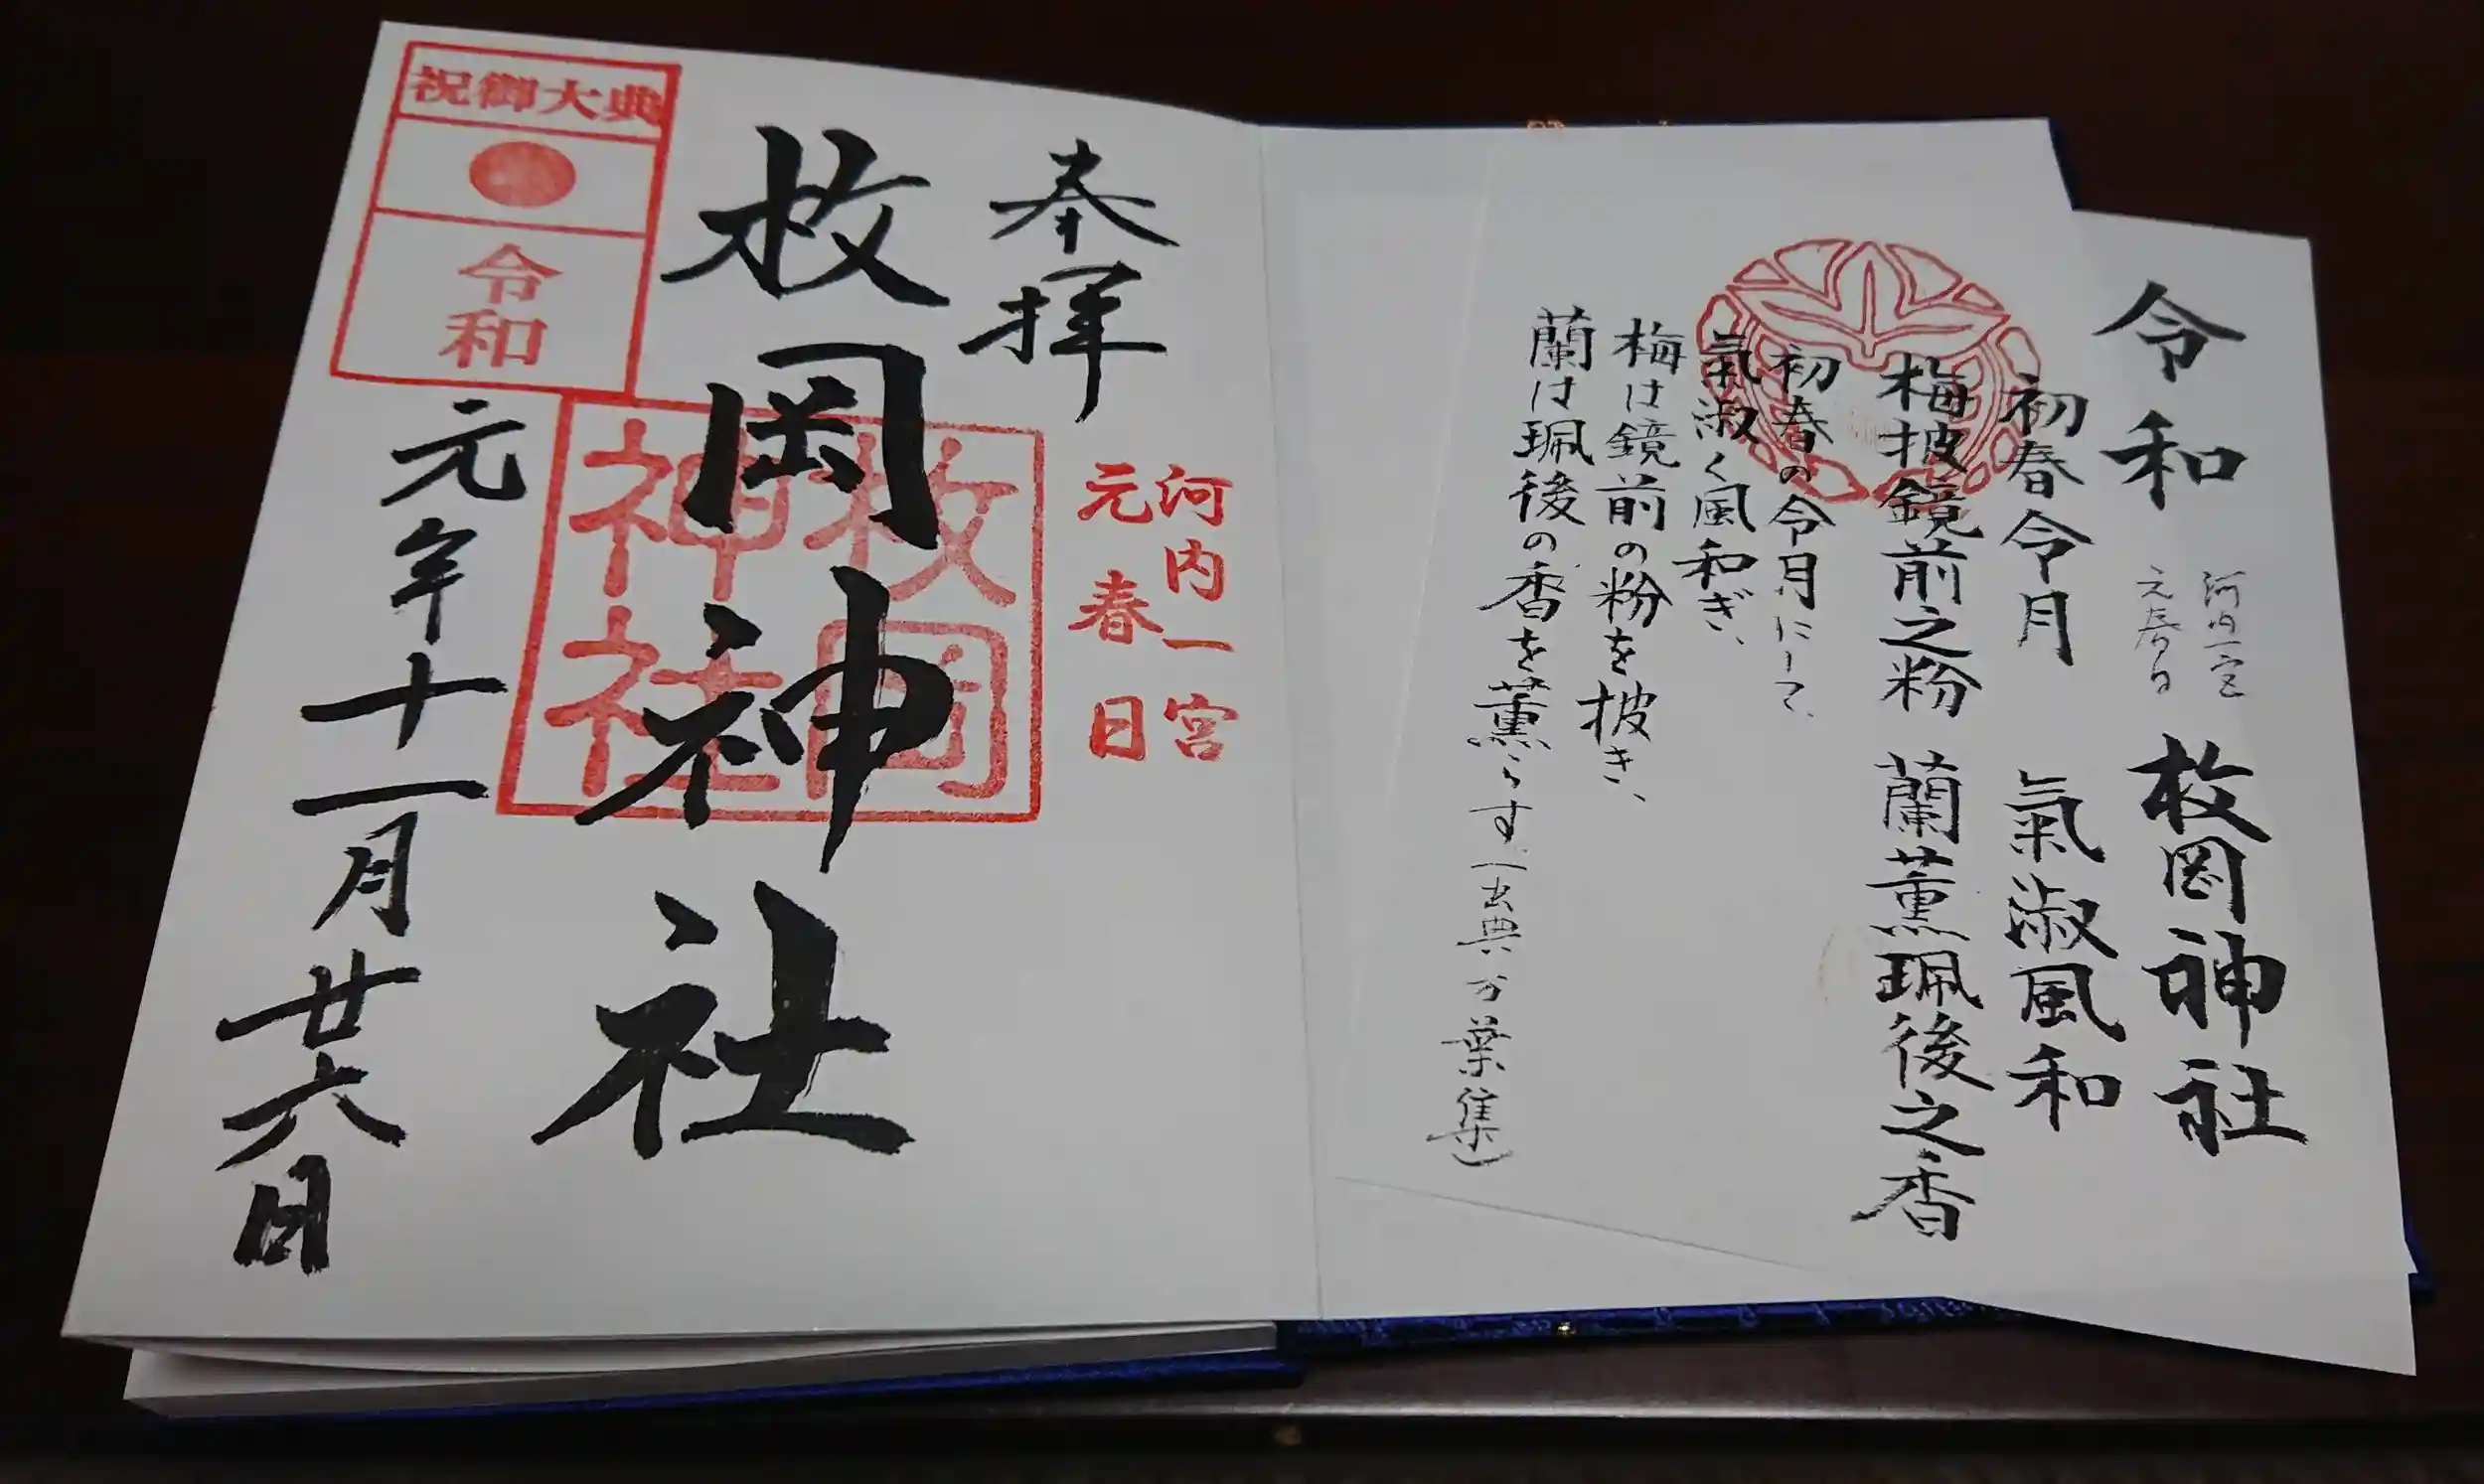 令和
河内一宮
元春日
枚岡神社
初春令月 氣淑風和
梅披鏡前之粉 蘭薫珮後之香
初春の令月にして、
氣淑く風和ぎ、
梅は鏡前の粉を披き、
蘭は珮後の香を薫らす
(出典 万葉集)
奉拝
河内一宮
元春日
枚岡神社
枚岡
神社
祝御大典
令和
元年十一月廿六日